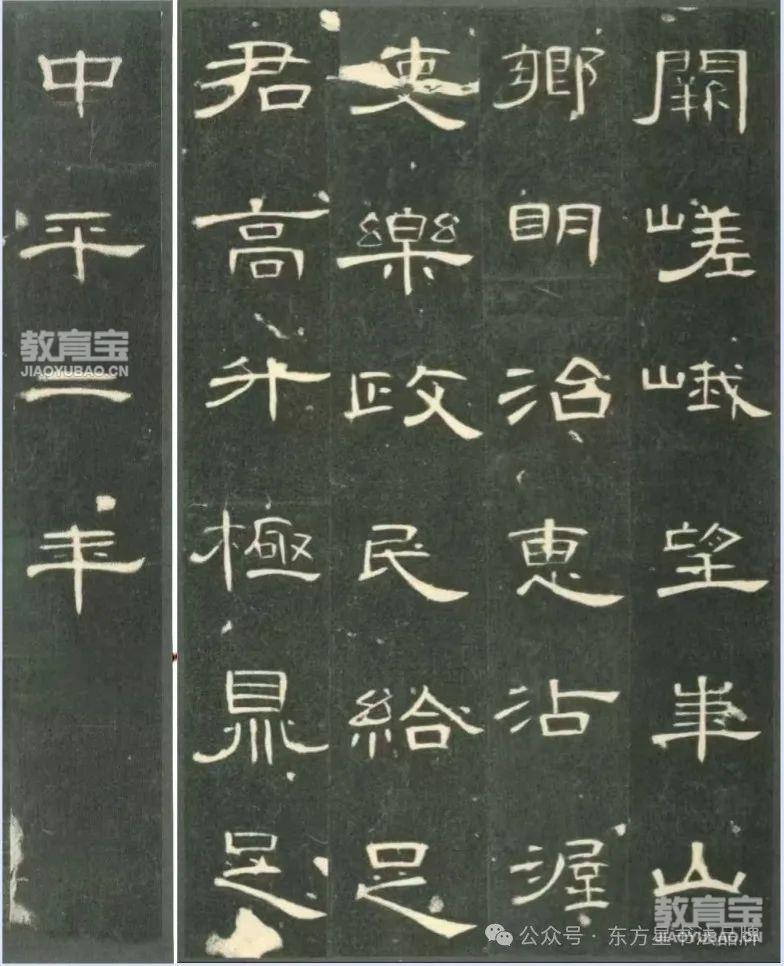 闕嵯峨望華山
鄉明治惠沾渥
吏樂政民給足
君高升極鼎足
中平二年
教育宝
JIAOYUBAO.CN
教育宝
JIAOYUBAO.CN
公众号 · 东方星书法品牌